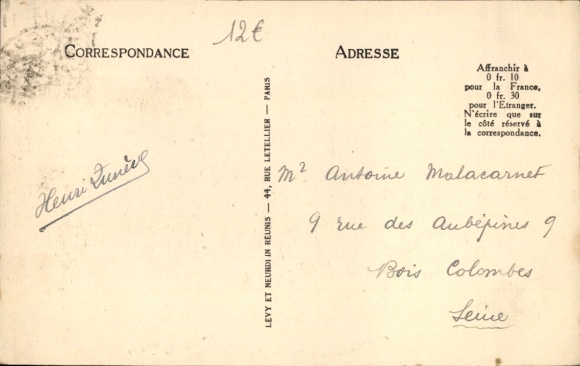 12€
CORRESPONDANCE
ADRESSE
Affranchir à
0 fr. 10
pour la France,
0 fr. 30
pour l'Etranger.
N'écrire que sur
le côté réservé à
la correspondance.
Henri
LEVY ET NEURDIN RÉUNIS — 44, RUE LETELLIER — PARIS
Mr Antoine Malacarnet
9 rue des Aubépines 9
Bois Colombes
Seine